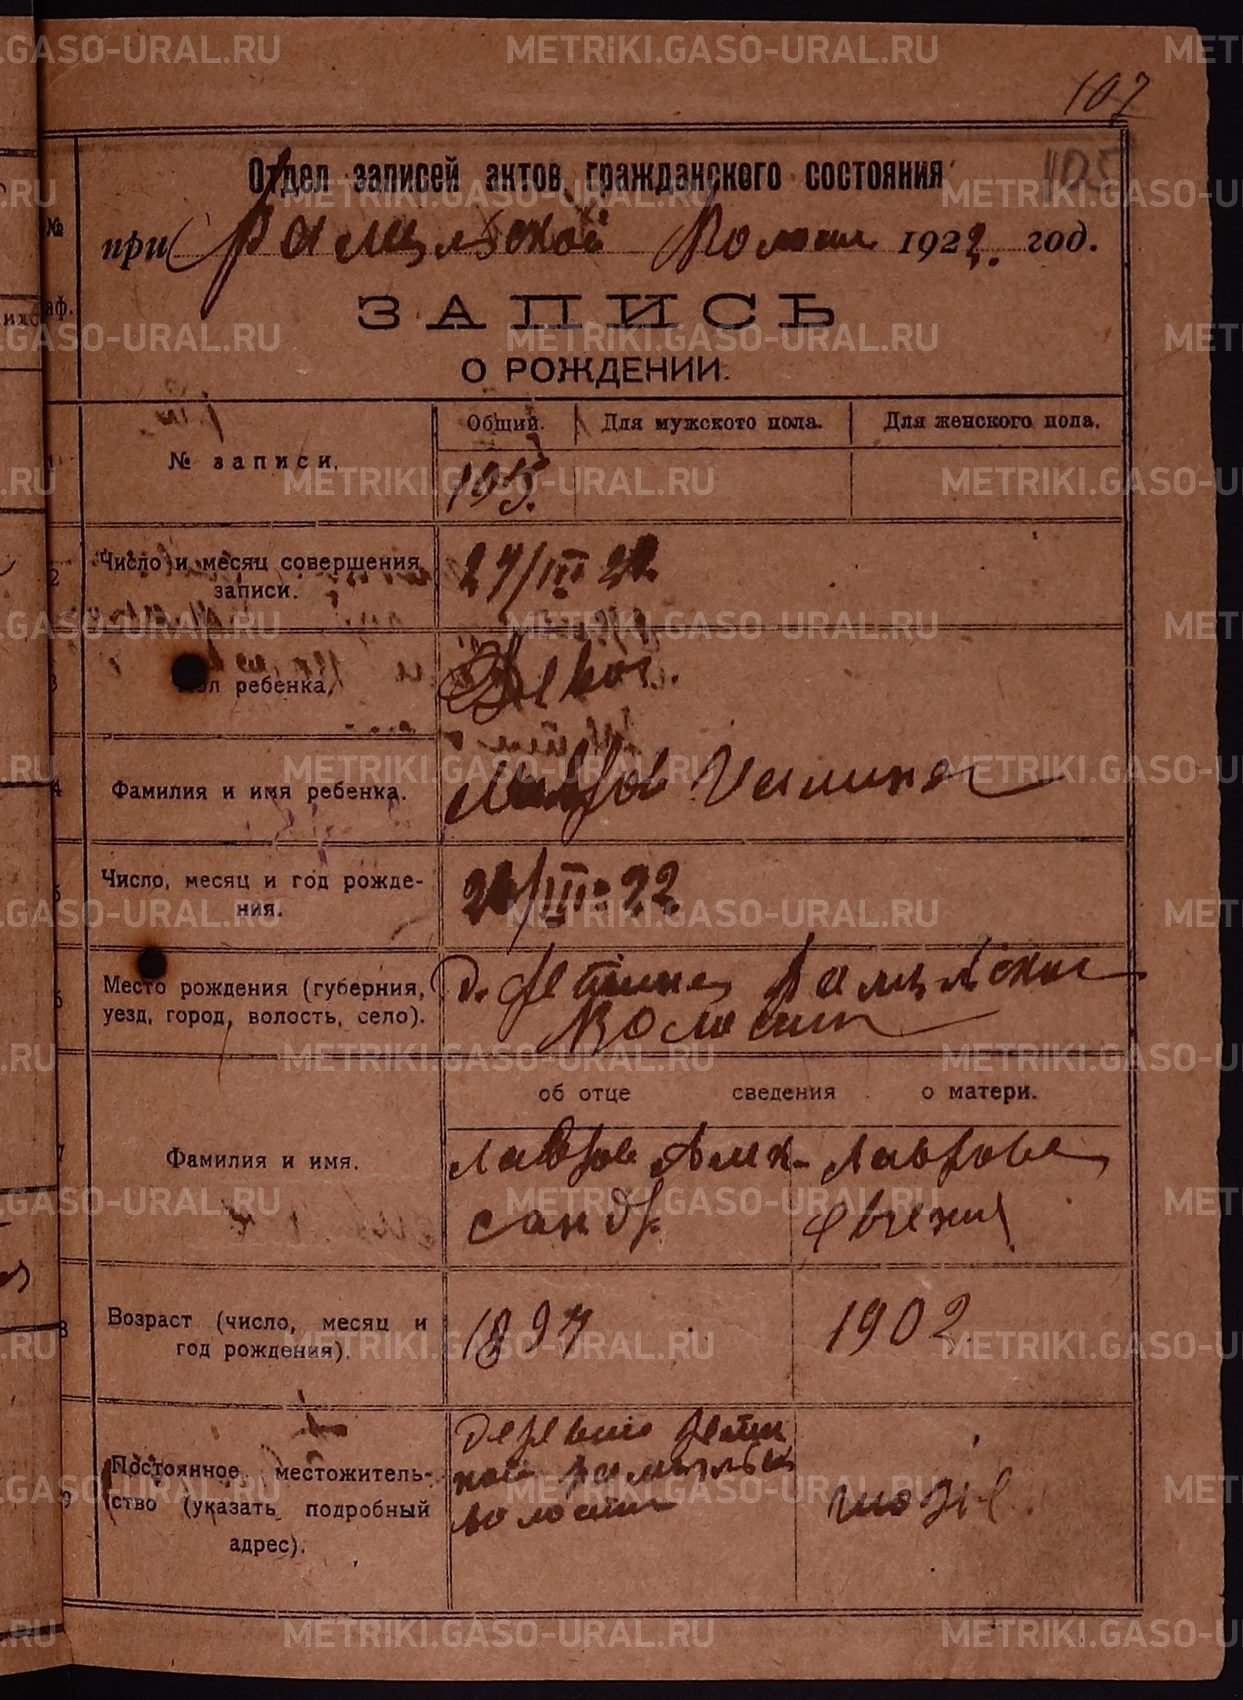 METRIKI.GASO-URAL.RU
107
105
Отдел записей актов гражданского состояния
при Рамыльской Волости 1922. год.
ЗАПИСЬ
О РОЖДЕНИИ.
№ записи.
Общий. Для мужского пола. Для женского пола.
105.
Число и месяц совершения
записи.
27/III 22.
Пол ребенка.
Фамилия и имя ребенка.
Лавров
Число, месяц и год рожде-
ния.
/III 22.
Место рождения (губерния,
уезд, город, волость, село).
д. Рамыльской
Волости
об отце сведения о матери.
Фамилия и имя.
Лавров Алек- Лаврова
сандр. Евгения
Возраст (число, месяц и
год рождения).
1897 1902.
Постоянное местожитель-
ство (указать подробный
адрес).
волости тоже.